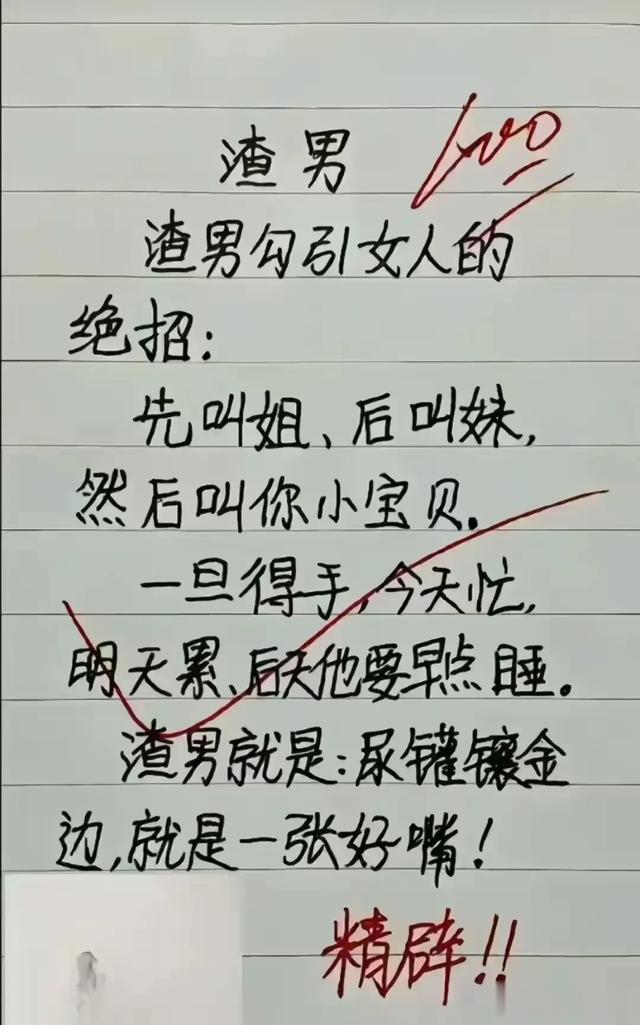 渣男
100
渣男勾引女人的
绝招:
先叫姐、后叫妹,
然后叫你小宝贝.
一旦得手,今天忙,
明天累、后天他要早点睡.
渣男就是:尿罐镶金
边,就是一张好嘴!
精辟!!